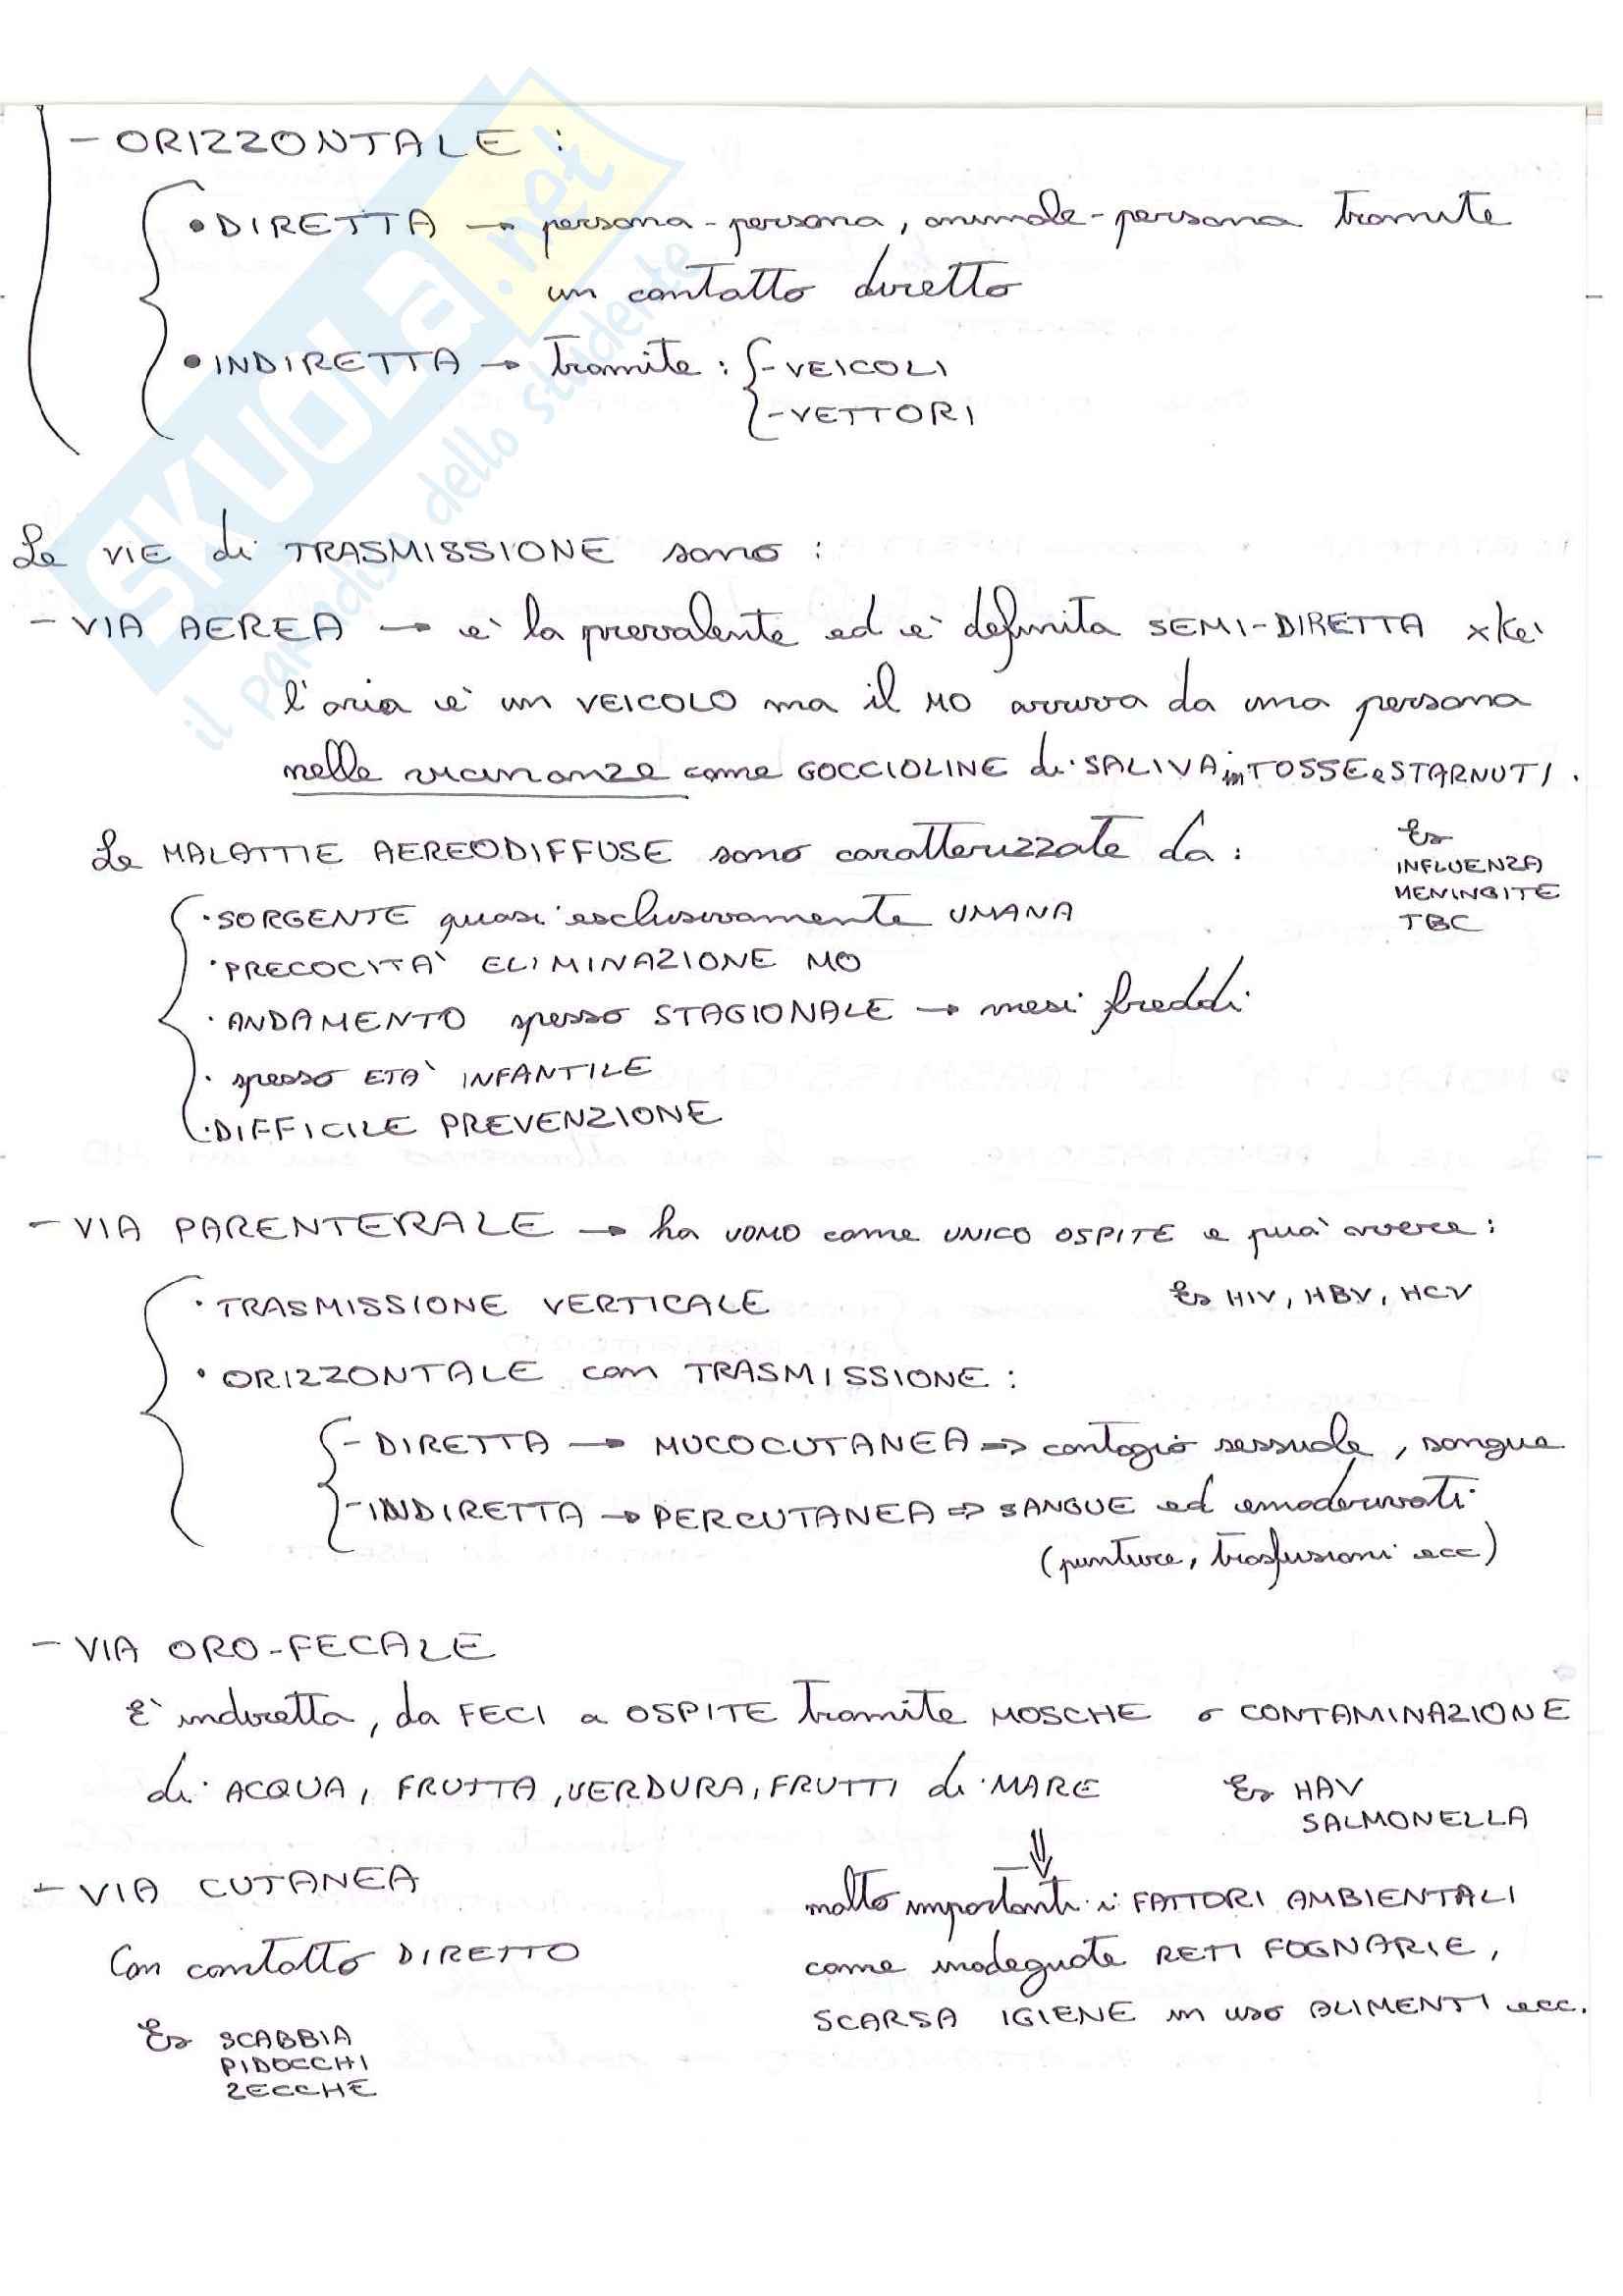 - ORIZZONTALE :
• DIRETTA → persona-persona, animale-persona tramite
un contatto diretto
• INDIRETTA → tramite : - VEICOLI
- VETTORI
Le VIE di TRASMISSIONE sono :
- VIA AEREA → e' la prevalente ed e' definita SEMI-DIRETTA xke'
l'aria e' un VEICOLO ma il MO arriva da una persona
nelle vicinanze come GOCCIOLINE di SALIVA in TOSSE e STARNUTI.
Le MALATTIE AEREODIFFUSE sono caratterizzate da :
Es
INFLUENZA
MENINGITE
TBC
• SORGENTE quasi esclusivamente UMANA
• PRECOCITA' ELIMINAZIONE MO
• ANDAMENTO spesso STAGIONALE → mesi freddi
• spesso ETA' INFANTILE
• DIFFICILE PREVENZIONE
- VIA PARENTERALE → ha UOMO come UNICO OSPITE e puo' avere :
• TRASMISSIONE VERTICALE
Es HIV, HBV, HCV
• ORIZZONTALE con TRASMISSIONE :
- DIRETTA → MUCOCUTANEA ⇒ contagio sessuale, sangue
- INDIRETTA → PERCUTANEA ⇒ SANGUE ed emoderivati
(punture, trasfusioni ecc)
- VIA ORO-FECALE
E' indiretta, da FECI a OSPITE tramite MOSCHE o CONTAMINAZIONE
di ACQUA, FRUTTA, VERDURA, FRUTTI di MARE
Es HAV
SALMONELLA
⇓
molto importanti i FATTORI AMBIENTALI
come inadeguate RETI FOGNARIE,
SCARSA IGIENE in uso ALIMENTI ecc.
- VIA CUTANEA
Con contatto DIRETTO
Es SCABBIA
PIDOCCHI
ZECCHE
SKUOLA.net
il paradiso dello studente